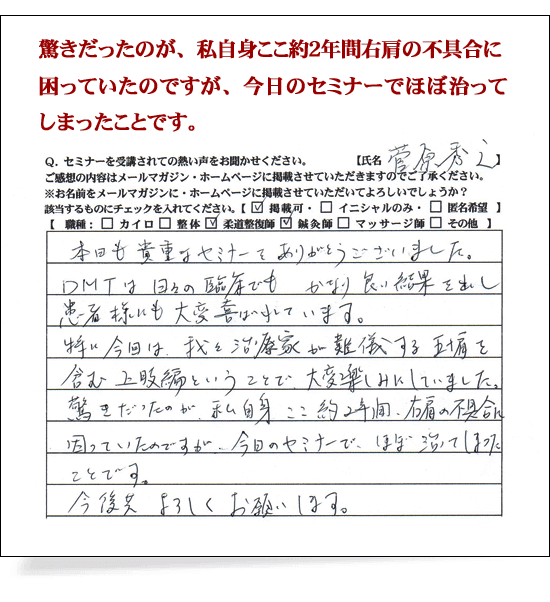 驚きだったのが、私自身ここ約2年間右肩の不具合に
困っていたのですが、今日のセミナーでほぼ治って
しまったことです。
Q．セミナーを受講されての熱い声をお聞かせください。 【氏名 菅原秀之】
ご感想の内容はメールマガジン・ホームページに掲載させていただきますのでご了承ください。
※お名前をメールマガジンに・ホームページに掲載させていただいてよろしいでしょうか？
該当するものにチェックを入れてください。【☑掲載可・□イニシャルのみ・□匿名希望】
【 職種：□カイロ □整体 ☑柔道整復師 ☑鍼灸師 □マッサージ師 □その他 】
本日も貴重なセミナーをありがとうございました。
DMTは日々の臨床でも かなり良い結果を出し
患者様にも大変喜ばれています。
特に今回は、我々治療家が難儀する五十肩を
含む上肢編ということで、大変楽しみにしていました。
驚きだったのが、私自身ここ約2年間、右肩の不具合に
困っていたのですが、今日のセミナーで、ほぼ治ってしまった
ことです。
今後共よろしくお願いします。